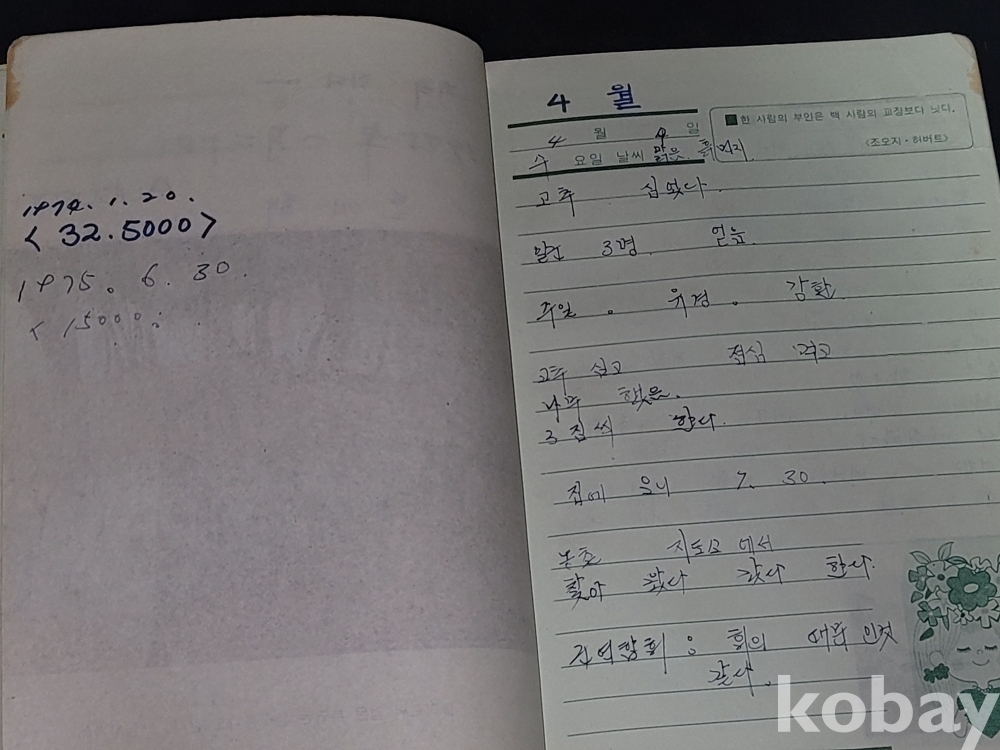 1974. 1. 20.
< 32.5000>
1975. 6. 30.
< 15000.
4 월
한 사람의 부인은 백 사람의 교장보다 낫다.
<조오지·허버트>
4 월 9 일
수 요일 날씨 맑음
고추 심었다.
3명 얻는
주일. 위경. 감환
고추 심고 점심 먹고
나무 했음.
3 집씩 한다.
집에 오니 7. 30.
농촌 지도소에서
찾아 왔다 갔다 한다.
회의 때문 인것
같다.
kobay